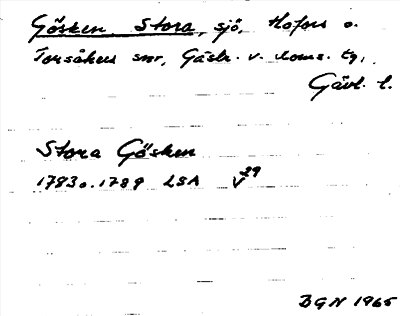 Gösken Stora, sjö, Hofors o.
Torsåkers snr, Gästr. v. doms. tg,
Gävl. l.
Stora Gösken
1783 o. 1789 LSA V 29
BGN 1965